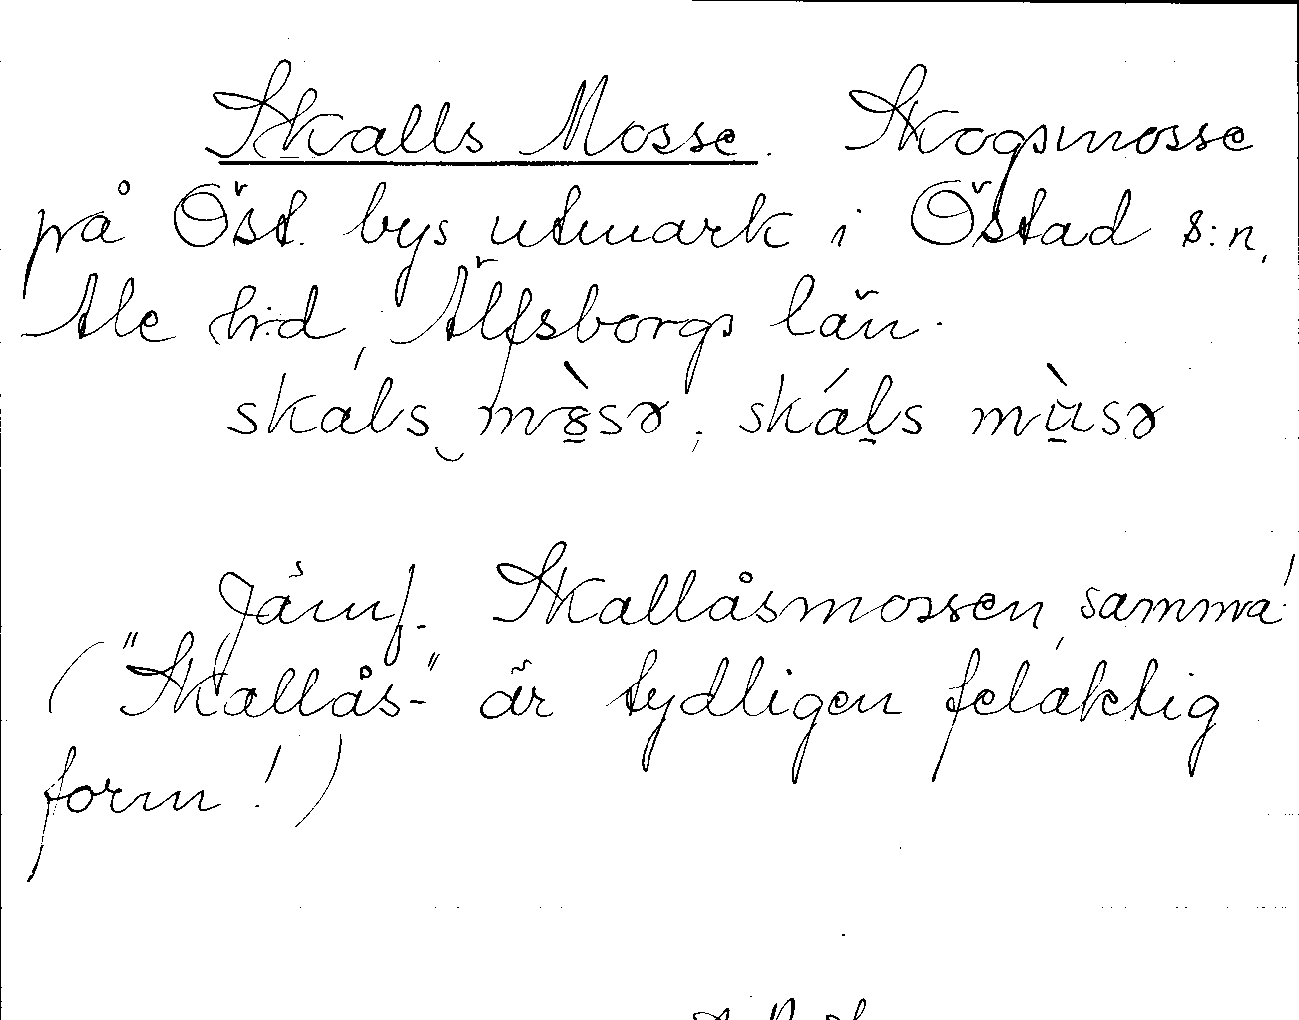 Skalls Mosse. Skogsmosse
på Öst. bys utmark i Östad s:n,
Ale h:d, Älfsborgs län.
skáls mòsə, skáls mùsə
Jämf. Skallåsmossen, samma!
("Skallås-" är tydligen felaktig
form!)